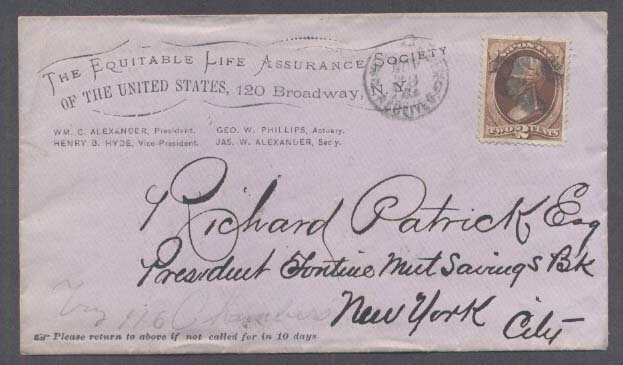 THE EQUITABLE LIFE ASSURANCE SOCIETY
OF THE UNITED STATES, 120 Broadway, N.Y.
WM. C. ALEXANDER, President.
HENRY B. HYDE, Vice-President.
GEO. W. PHILLIPS, Actuary.
JAS. W. ALEXANDER, Sec'y.
POSTAGE
TWO 2 CENTS
Richard Patrick Esq
President Tontine Mut Savings Bk
New York
City
Try 116 Chambers
☞ Please return to above if not called for in 10 days.